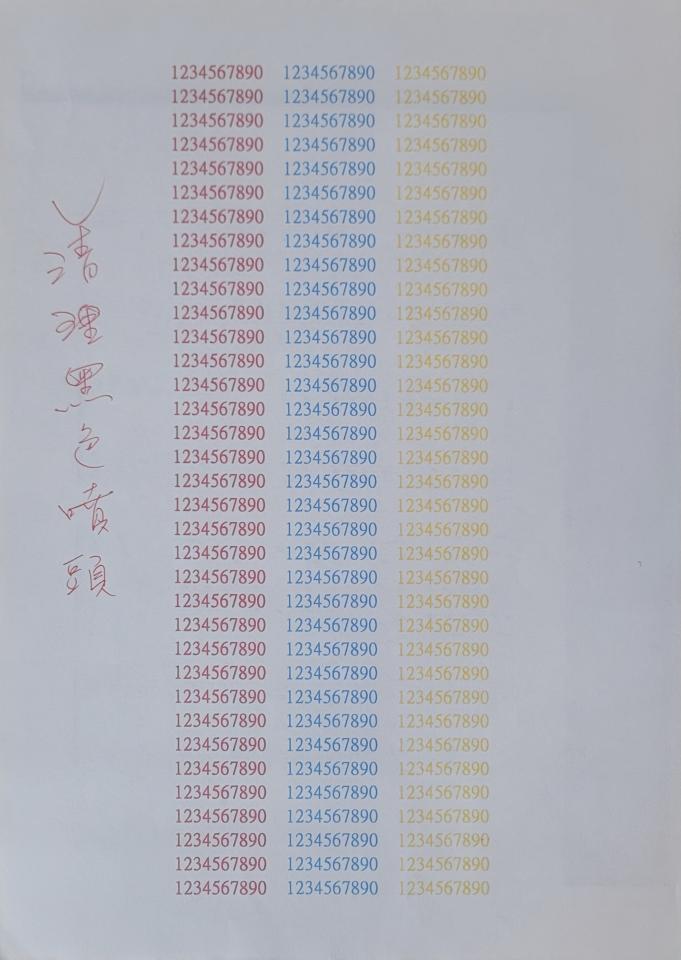 清理黑色噴頭
1234567890 1234567890 1234567890
1234567890 1234567890 1234567890
1234567890 1234567890 1234567890
1234567890 1234567890 1234567890
1234567890 1234567890 1234567890
1234567890 1234567890 1234567890
1234567890 1234567890 1234567890
1234567890 1234567890 1234567890
1234567890 1234567890 1234567890
1234567890 1234567890 1234567890
1234567890 1234567890 1234567890
1234567890 1234567890 1234567890
1234567890 1234567890 1234567890
1234567890 1234567890 1234567890
1234567890 1234567890 1234567890
1234567890 1234567890 1234567890
1234567890 1234567890 1234567890
1234567890 1234567890 1234567890
1234567890 1234567890 1234567890
1234567890 1234567890 1234567890
1234567890 1234567890 1234567890
1234567890 1234567890 1234567890
1234567890 1234567890 1234567890
1234567890 1234567890 1234567890
1234567890 1234567890 1234567890
1234567890 1234567890 1234567890
1234567890 1234567890 1234567890
1234567890 1234567890 1234567890
1234567890 1234567890 1234567890
1234567890 1234567890 1234567890
1234567890 1234567890 1234567890
1234567890 1234567890 1234567890
1234567890 1234567890 1234567890
1234567890 1234567890 1234567890
1234567890 1234567890 1234567890